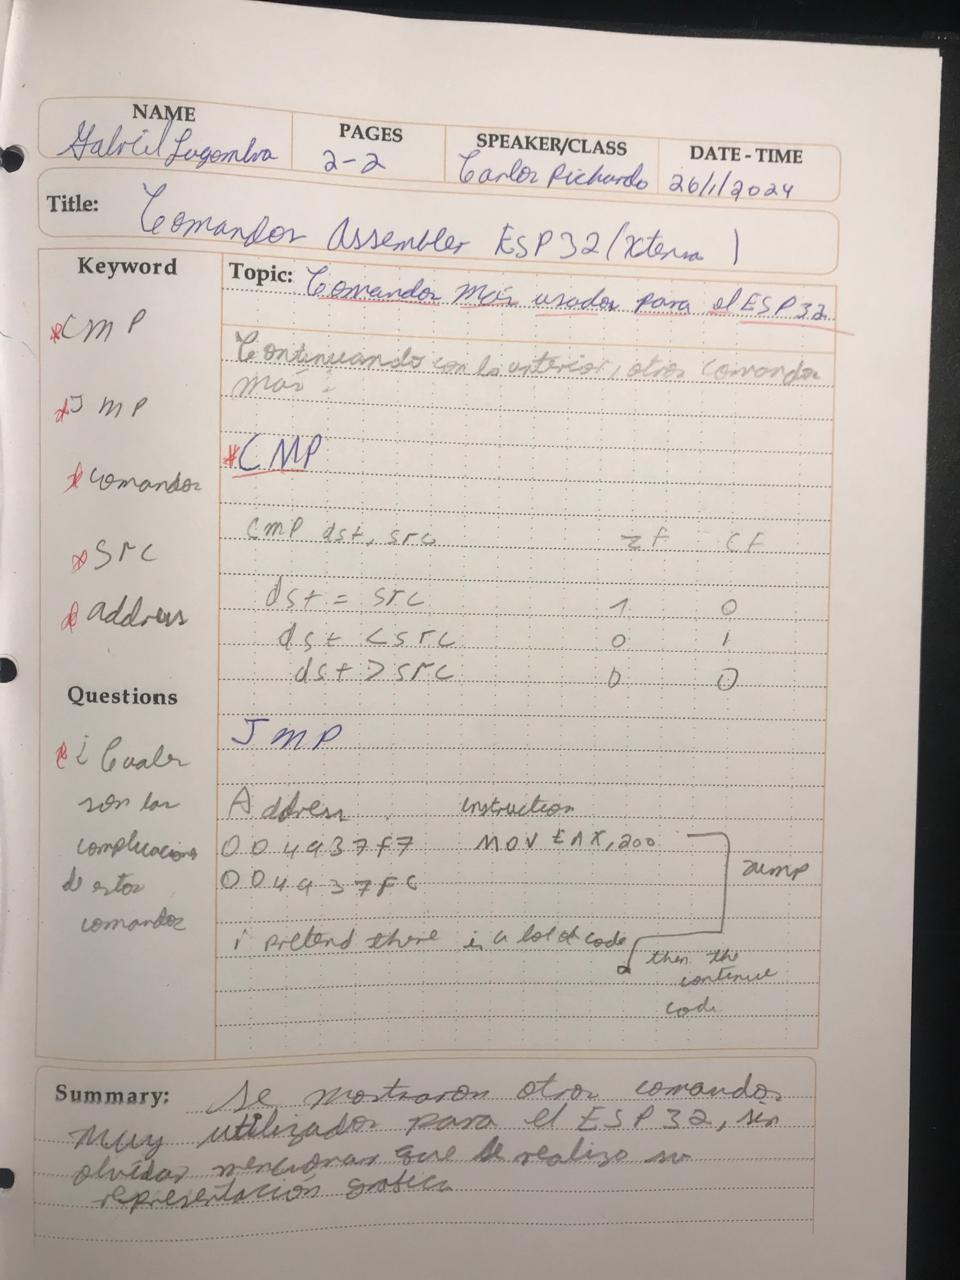 NAME
PAGES
SPEAKER/CLASS
DATE - TIME
Gabriel
2-2
Carlos Pichardo
26/1/2024
Title: Comandos Assembler ESP32 (Xtensa)
Keyword
*CMP
*JMP
*comandos
*src
*address
Questions
*¿Cuales
son las
complicaciones
de estos
comandos
Topic: Comandos más usados para el ESP32
Continuando con lo anterior, otros comandos
más:
*CMP
CMP dst, src ZF CF
dst = src 1 0
dst < src 0 1
dst > src 0 0
JMP
Address instruction
004937F7 MOV EAX, 200
004937FC
jump
i pretend there is a lot of code
then the
continue
code
Summary: Se mostraron otros comandos
muy utilizados para el ESP32, sin
olvidar mencionar que se realizo su
representación grafica